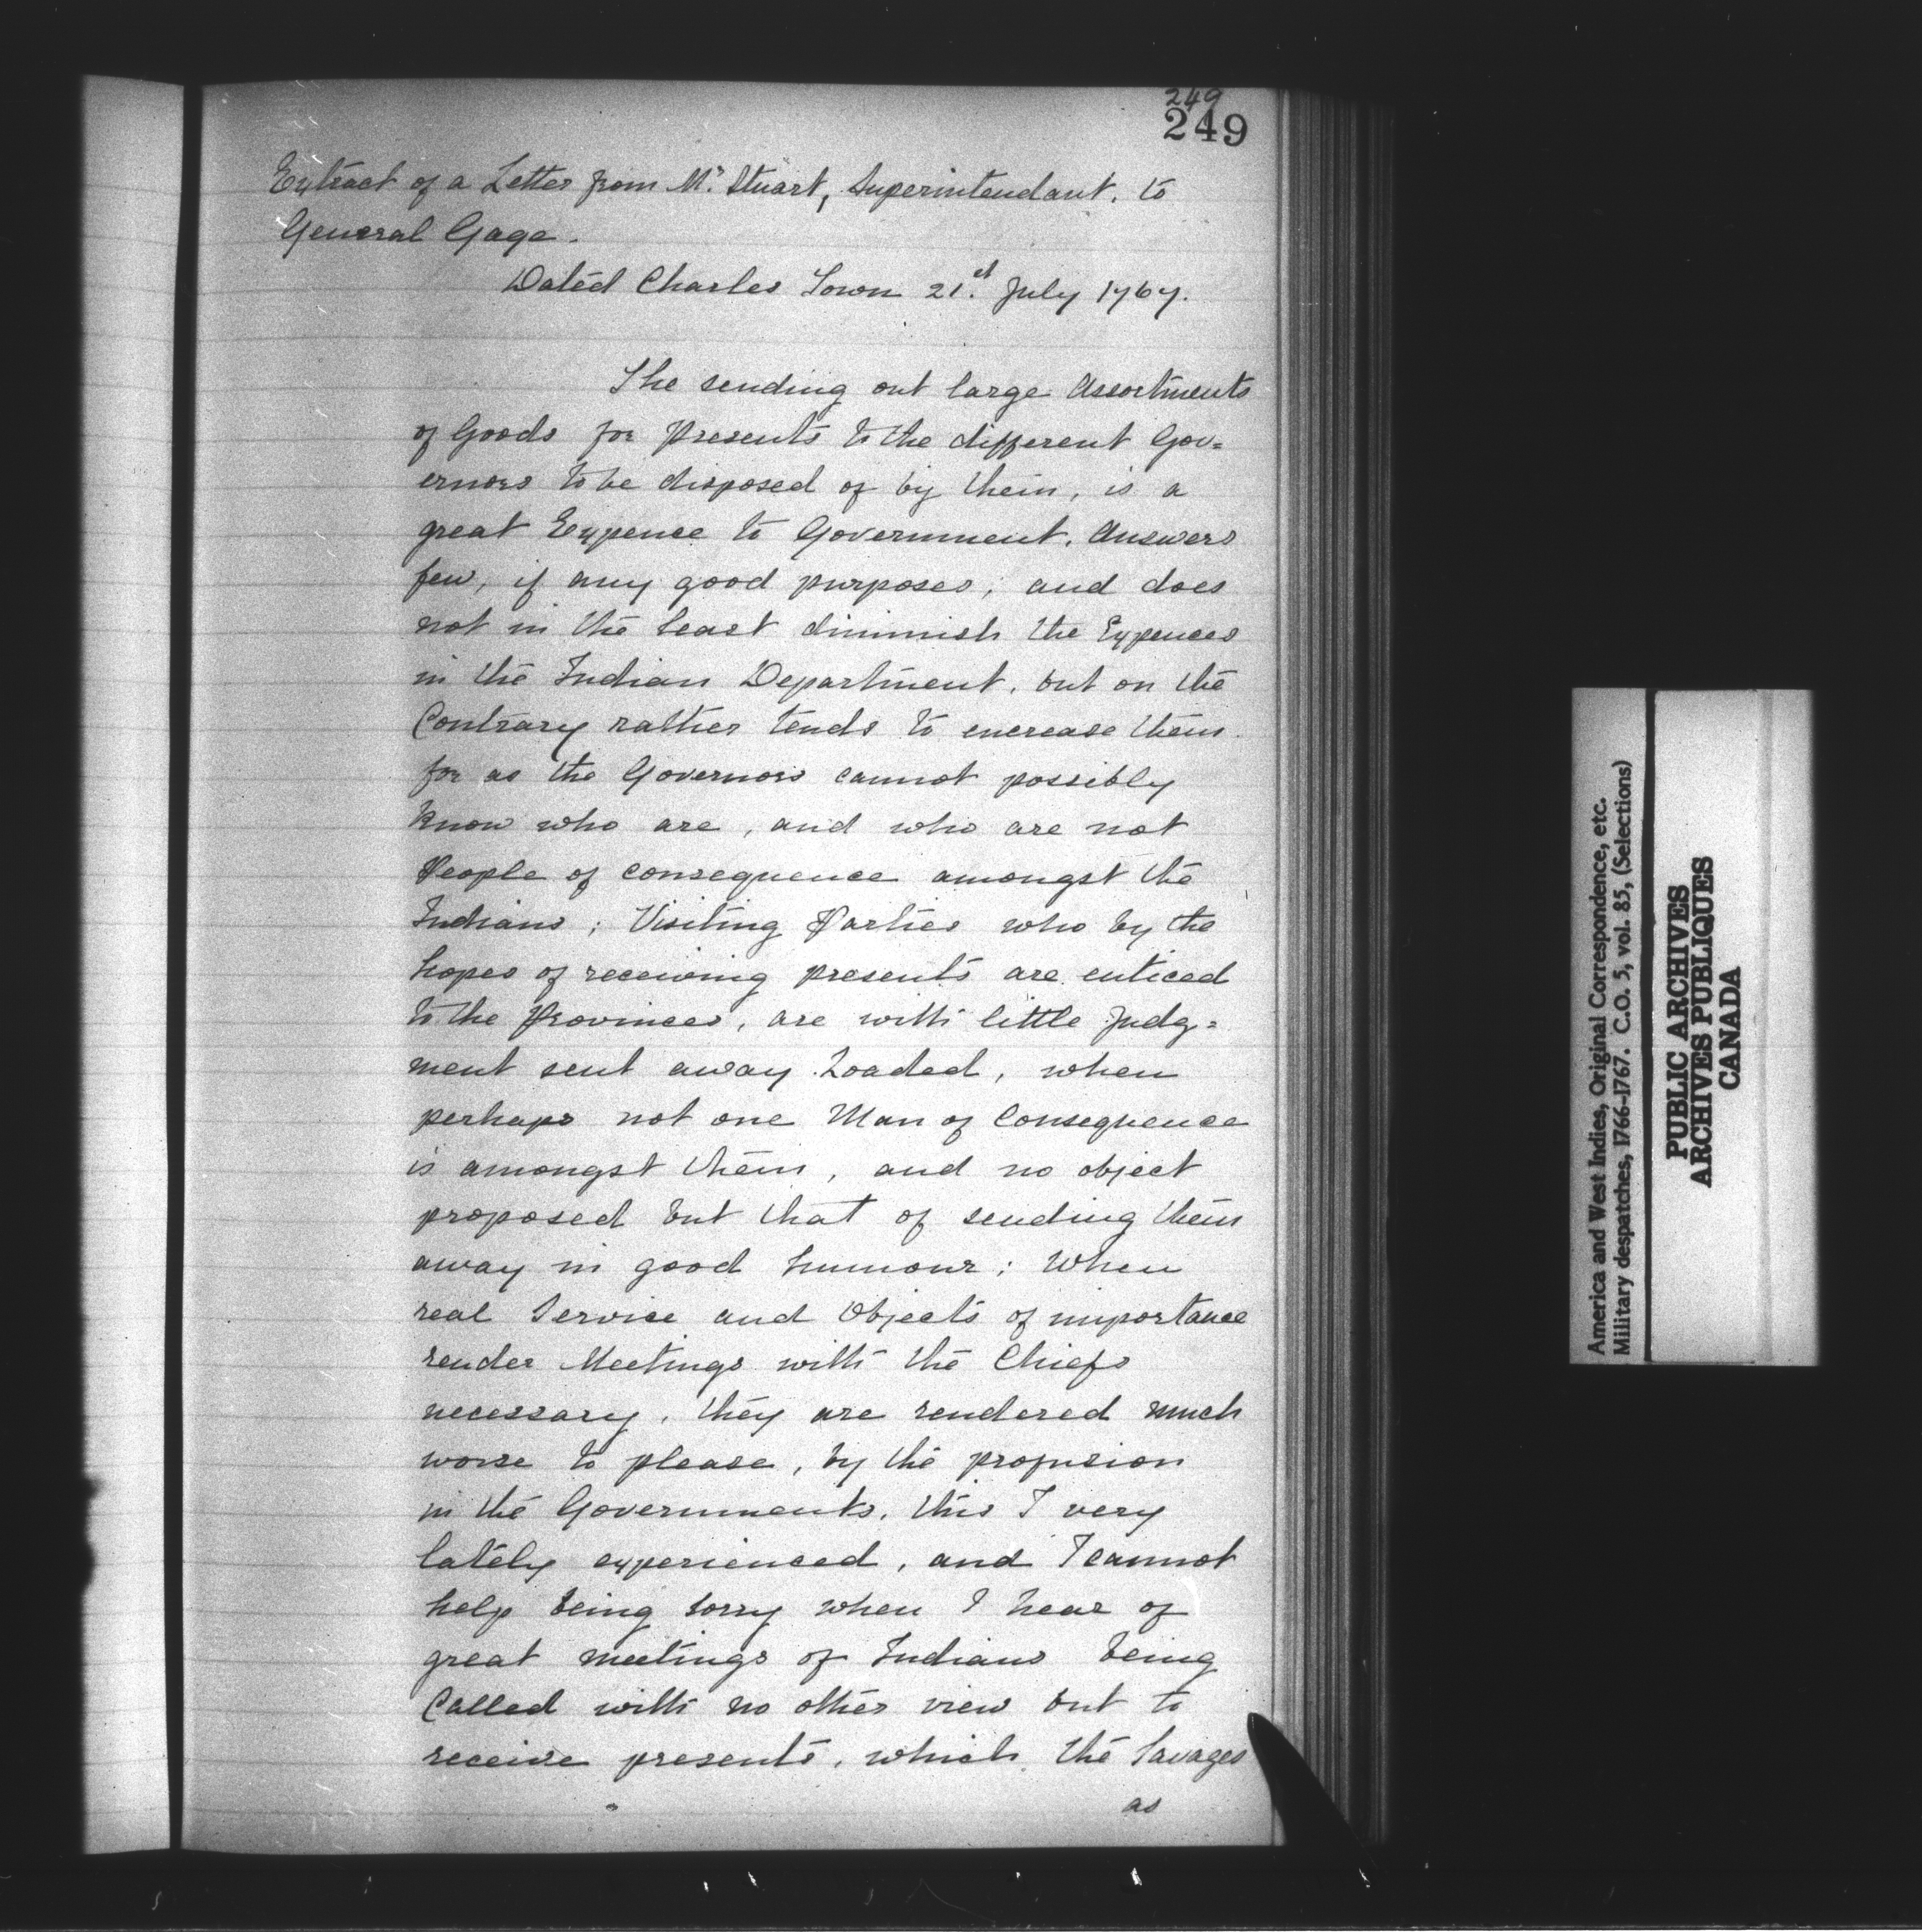 249
249
Extract of a Letter from Mr. Stuart, Superintendant, to
General Gage.
Dated Charles Town 21.st July 1767.
The sending out large Assortments
of Goods for Presents to the different Gov=
ernors to be disposed of by them, is a
great Expence to Government, Answers
few, if any good purposes; and does
not in the least diminish the Expences
in the Indian Department, but on the
Contrary rather tends to encrease them
for as the Governors cannot possibly
know who are, and who are not
People of consequence amongst the
Indians; Visiting Parties who by the
hopes of receiving presents are enticed
to the Provinces, are with little Judg=
ment sent away Loaded, when
perhaps not one Man of Consequence
is amongst them, and no object
proposed but that of sending them
away in good humour; When
real Service and Objects of importance
render Meetings with the Chiefs
necessary, they are rendered much
worse to please, by the profusion
in the Governments, this I very
lately experienced, and I cannot
help being sorry when I hear of
great meetings of Indians being
Called with no other view but to
receive presents, which the Savages
as
America and West Indies, Original Correspondence, etc.
Military despatches, 1766-1767. C.O. 5, vol. 85, (Selections)
PUBLIC ARCHIVES
ARCHIVES PUBLIQUES
CANADA